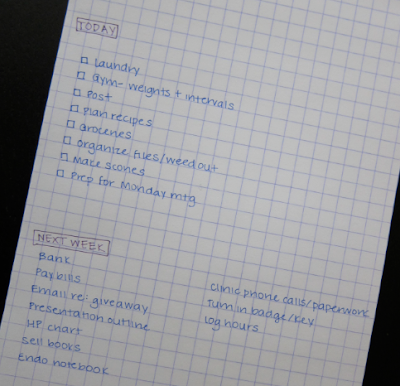 TODAY
laundry
Gym- weights + intervals
Post
plan recipes
groceries
organize files/weed out
Make scones
Prep for Monday mtg
NEXT WEEK
Bank
Pay bills
Email re: giveaway
Presentation outline
HP chart
Sell books
Endo notebook
Clinic phone calls/paperwork
Turn in badge/key
log hours